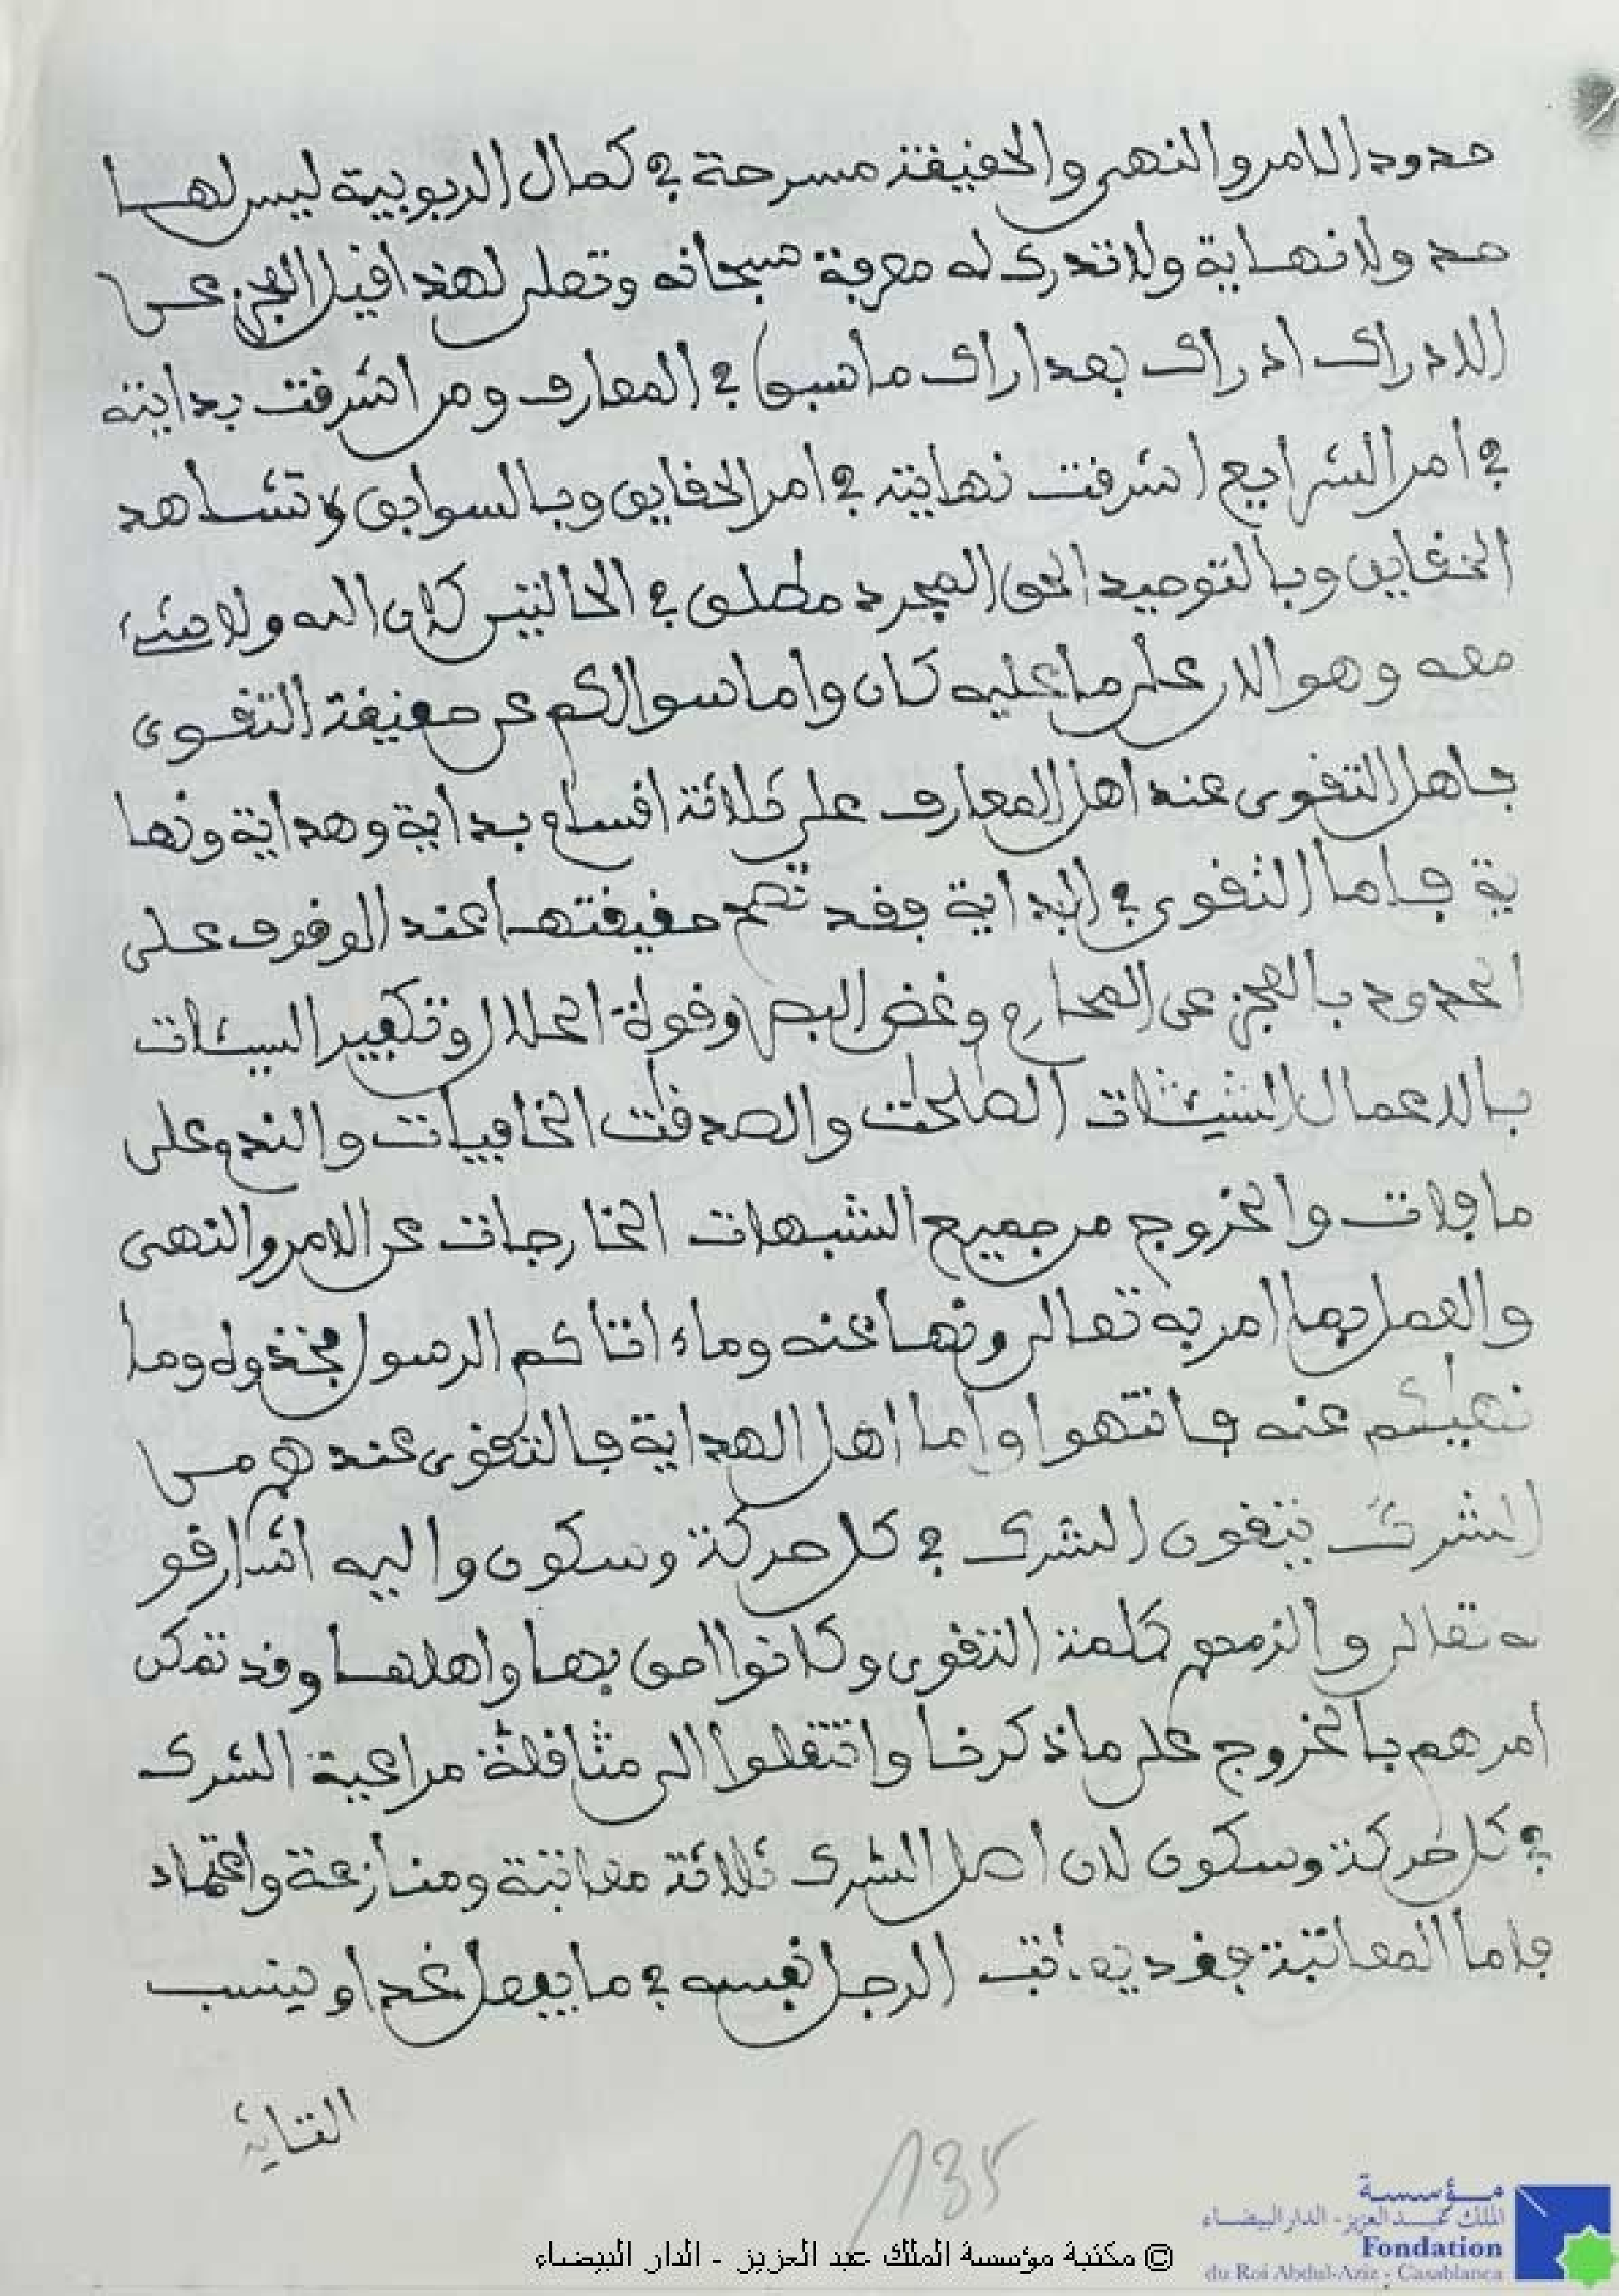 حدود الامر والنهي والحقيقة مسرحة في كمال الربوبية ليس لها
حد ولا نهاية ولا تدرك له معرفة سبحانه وتعلى لهذا قيل العجز عن
الادراك ادراك بعد ادراك ما سبق في المعارف ومن اشرقت بدايته
في امر الشرايع اشرقت نهايته في امر الحقايق وبالسوابق لا تشاهد
الحقايق وبالتوحيد الحق المجرد مطلق في الحالتين كان الله ولا شيء
معه وهو الان على ما عليه كان واما سوالكم عن حقيقة التقوى
فاهل التقوى عند اهل المعارف على ثلاثة اقسام بداية وهداية ونها
ية فاما التقوى في البداية فقد تصح حقيقتها عند الوقوف على
الحدود بالعجز عن المحارم وغض البصر وقولة الحلال وتكفير السيئات
بالاعمال الصلحت والصدقت الخافيات والندم على
ما فات والخروج من جميع الشبهات الخارجات عن الامر والنهى
والعمل بما امر به تعالى ونها عنه وماء اتاكم الرسول فخذوه وما
نهيكم عنه فانتهوا واما اهل الهداية فالتقوى عندهم من
الشرك يتقون الشرك في كل حركة وسكون واليه اشار قو
له تعالى والزمهم كلمة التقوى وكانوا احق بها واهلها وقد تمكن
امرهم بالخروج على ما ذكرنا وانتقلوا الى مثاقلة مراعية الشرك
في كل حركة وسكون لان اصل الشرك ثلاثة معاتبة ومنازعة واعتماد
فاما المعاتبة فقد يعاتب الرجل نفسه في ما يفعل غدا وينسب
135
© مكتبة مؤسسة الملك عبد العزيز - الدار البيضاء
مؤسسة
الملك عبد العزيز - الدار البيضاء
Fondation
du Roi Abdul-Aziz - Casablanca